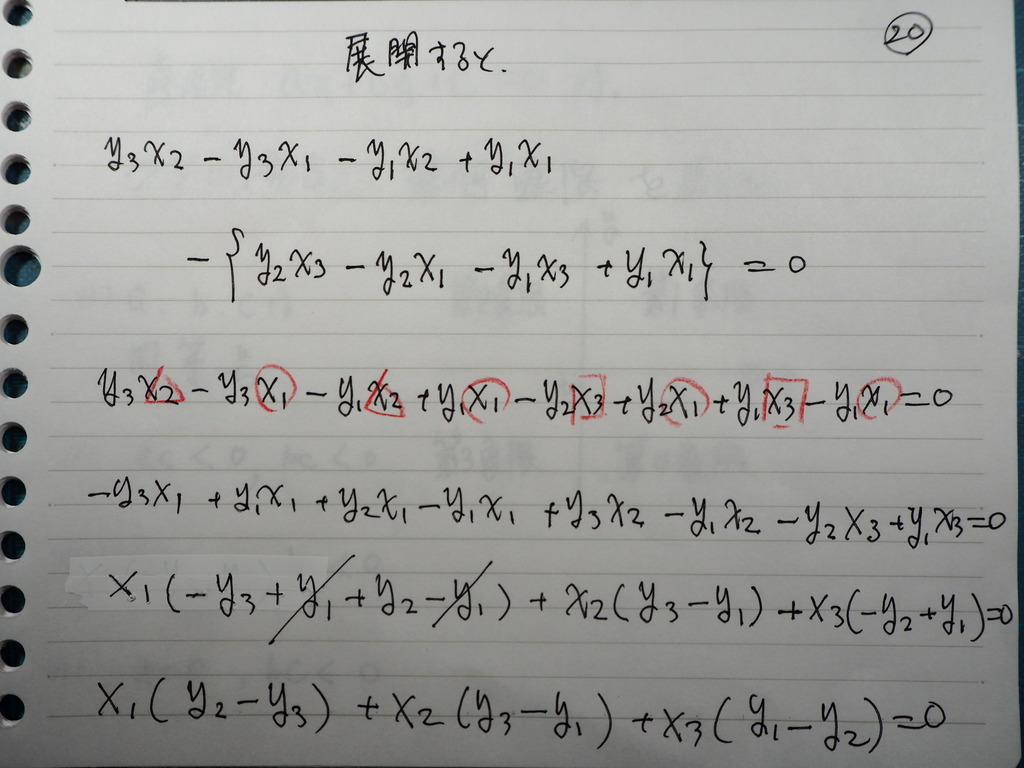 ⑳
展開すると.
y₃x₂ - y₃x₁ - y₁x₂ + y₁x₁
- { y₂x₃ - y₂x₁ - y₁x₃ + y₁x₁} = 0
y₃x₂ - y₃x₁ - y₁x₂ + y₁x₁ - y₂x₃ + y₂x₁ + y₁x₃ - y₁x₁ = 0
-y₃x₁ + y₁x₁ + y₂x₁ - y₁x₁ + y₃x₂ - y₁x₂ - y₂x₃ + y₁x₃ = 0
x₁(-y₃ + y₁ + y₂ - y₁) + x₂(y₃ - y₁) + x₃(-y₂ + y₁) = 0
x₁(y₂ - y₃) + x₂(y₃ - y₁) + x₃(y₁ - y₂) = 0